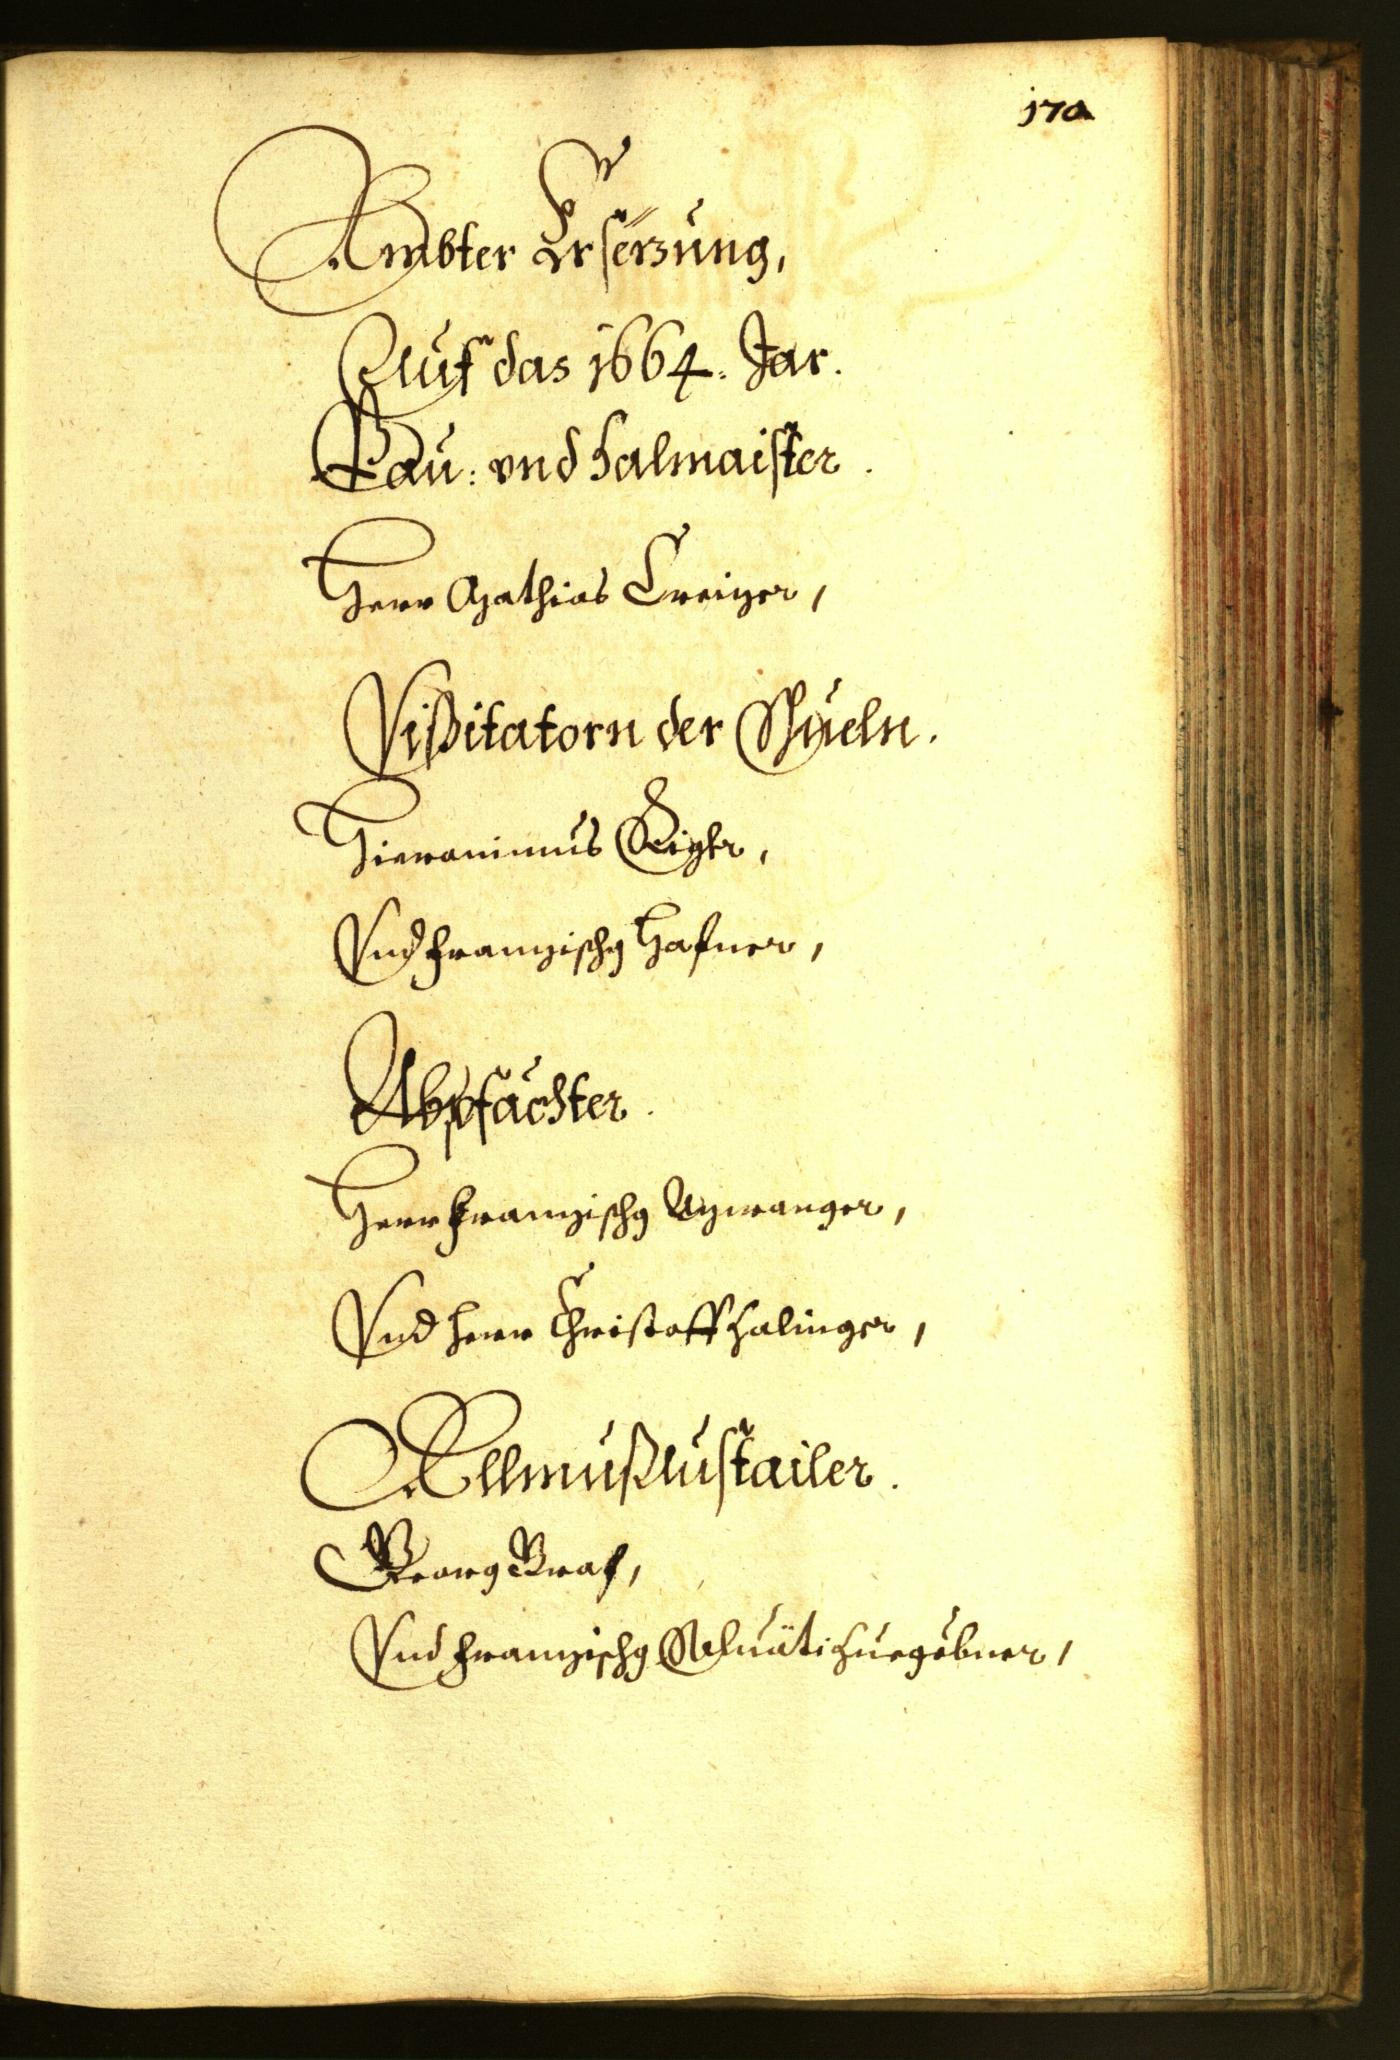 170
Ambter Ersetzung,
Auf das 1664. Jar.
Bau: vnd Salmaister.
Herr Mathias Creizer,
Vißitatorn der Schueln.
Hieronimus
Vnd Franzischg Hafner,
Abpfächter.
Herr Franzischg Azwanger,
Vnd Herr Christoff Halinger,
Allmußaustailer.
Georg Graf,
Vnd Franzischg